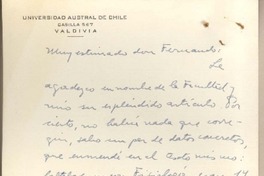 UNIVERSIDAD AUSTRAL DE CHILE
CASILLA 567
VALDIVIA
Muy estimado don Fernando: Le
agradezco en nombre de la Facultad y
mío su espléndido artículo. Por
cierto, no habrá nada que corre-
gir, salvo un par de datos concretos,
que enmendé en el texto mismo: